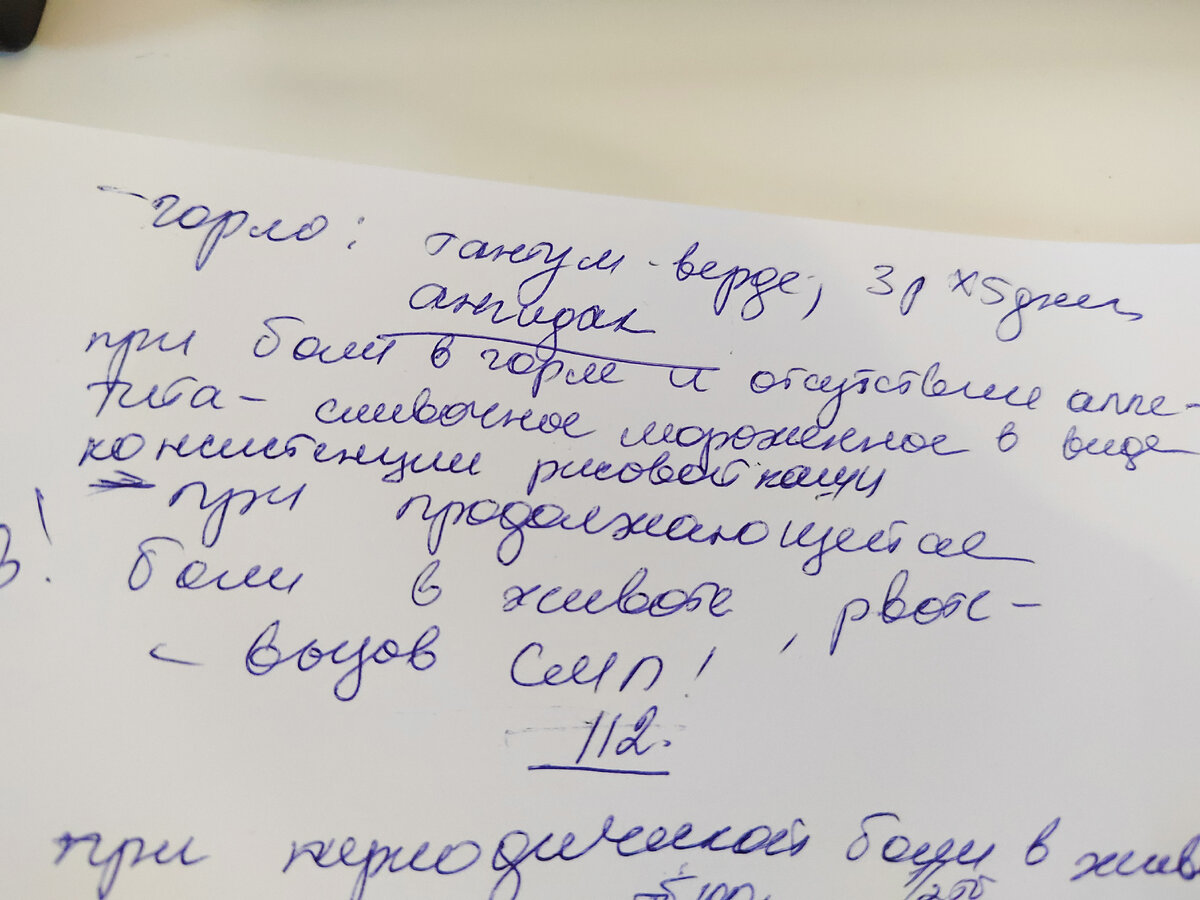 - горло: тантум-верде, 3р x 5 дней
ангидак
при боли в горле и отсутствии аппе-
тита - сливочное мороженное в виде
консистенции рисовой каши
при продолжающейся
В! боли в животе, рвоте -
- вызов СМП!
112.
при периодической боли в жив